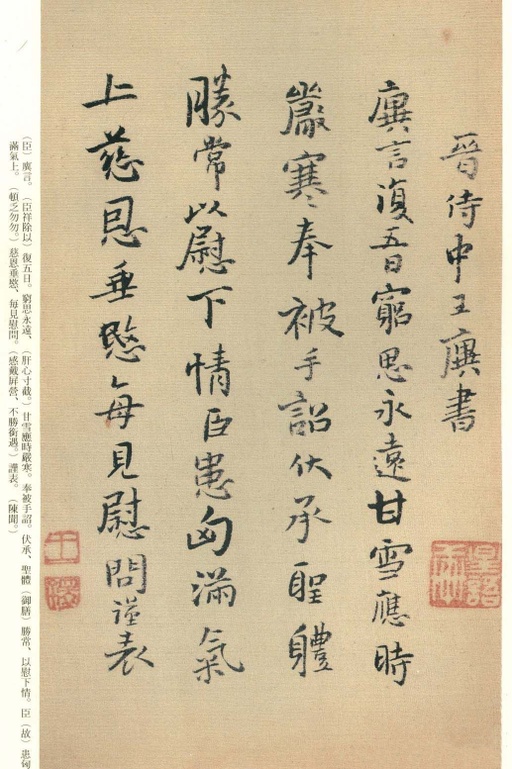 晉侍中王廙書
廙言復吾日窮思永遠甘雪應時
嚴寒奉被手詔伏承聖體
勝常以慰下情臣患匈滿氣
上慈恩垂愍每見慰問謹表
(臣)廙言。(臣祥除以)復五日。窮思永遠、(肝心寸截。)甘雪應時嚴寒。奉被手詔。伏承、聖體(御膳)勝常、以慰下情。臣(故)患匈
滿氣上。(頓乏勿勿。)慈恩垂愍、每見慰問。(感戴屏營、不勝銜遇。)謹表。(陳聞。)